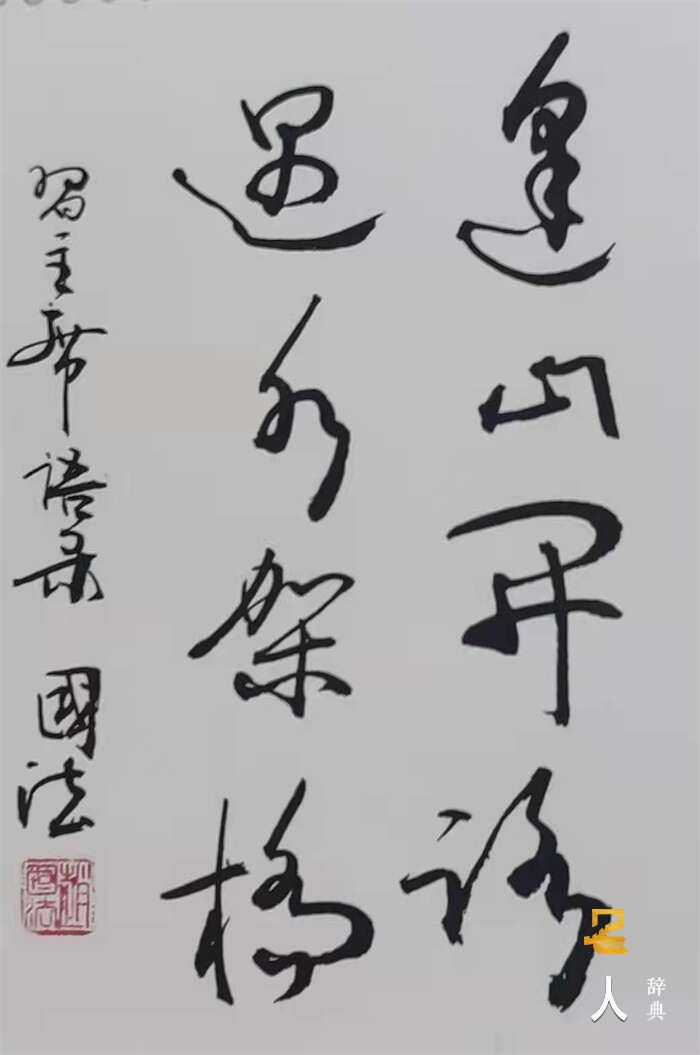 逢山开路
遇水架桥
习主席语录 國法
人
辞典